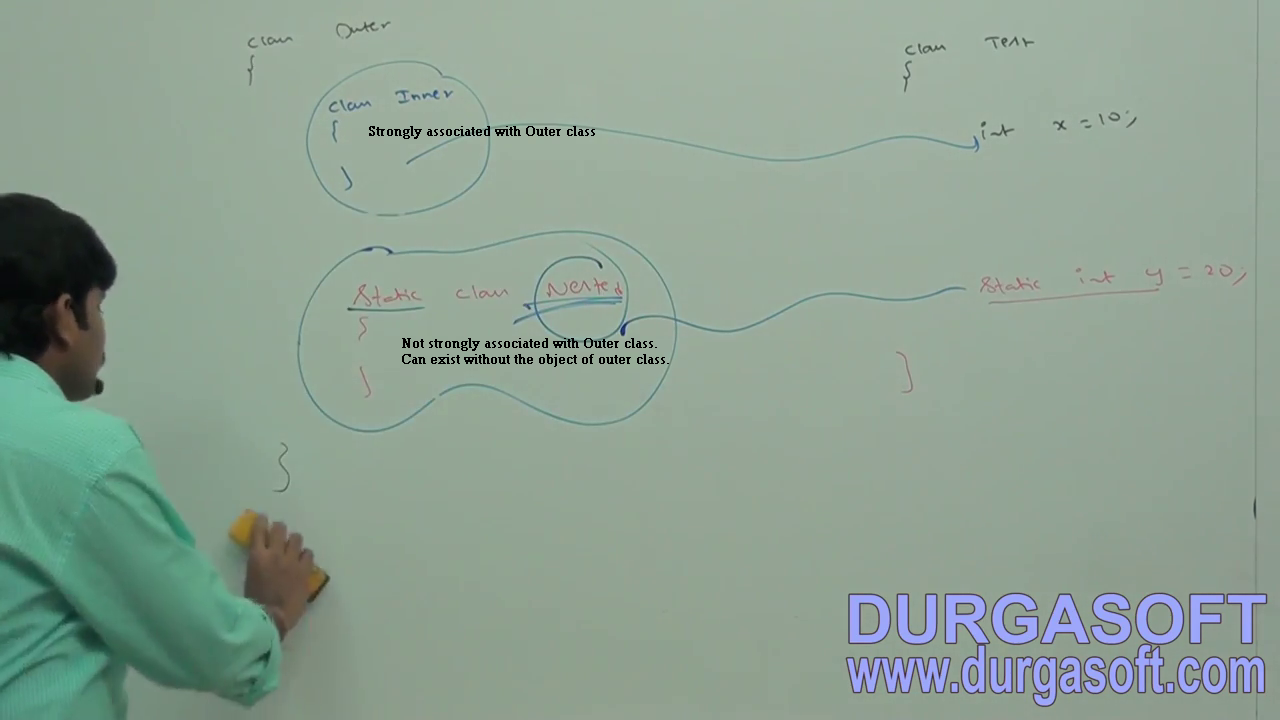 class Outer
{
class Inner
{
Strongly associated with Outer class
}
static class Nested
{
Not strongly associated with Outer class.
Can exist without the object of outer class.
}
}
class Test
{
int x = 10;
static int y = 20;
}
DURGASOFT
www.durgasoft.com